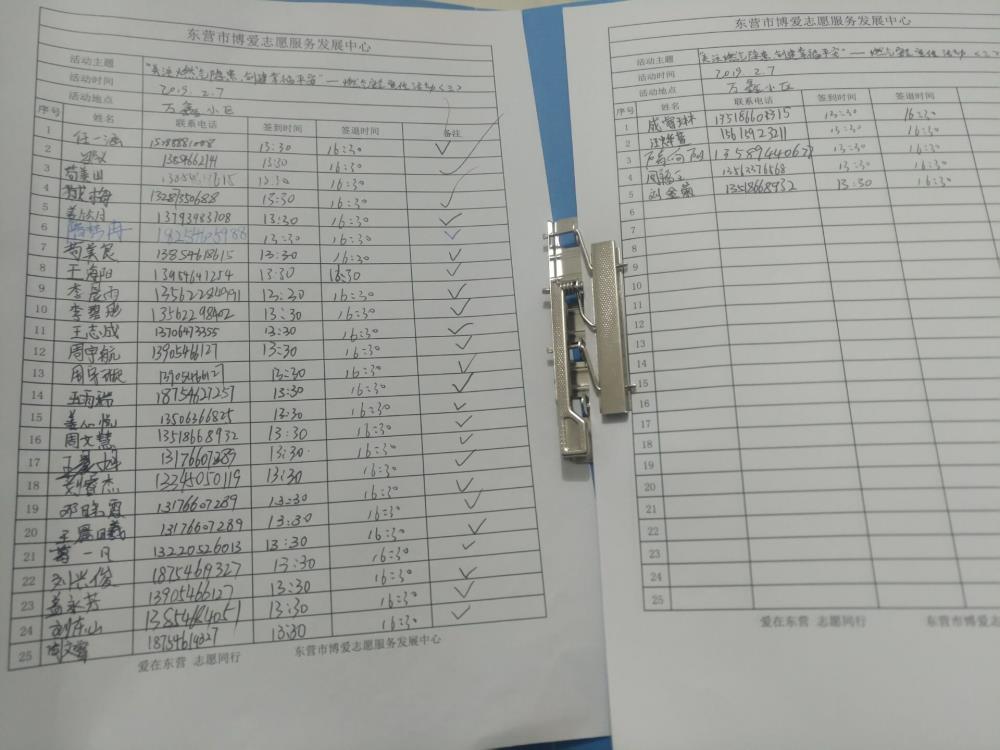 东营市博爱志愿服务发展中心
活动主题 "关注燃气隐患,创建幸福平安"——燃气安全宣传活动<2>
活动时间 2019.2.7
活动地点 万鑫小区
序号 姓名 联系电话 签到时间 签退时间 备注
1 任一涵 13:30 16:30 ✓
2 13:30 16:30
3 苟美田 13:30 16:30 ✓
4 13287350688 13:30 16:30 ✓
5 13793483708 13:30 16:30 ✓
6 13:30 16:30 ✓
7 苟美良 13854618615 13:30 16:30 ✓
8 于海阳 13954641254 13:30 16:30 ✓
9 李晨雨 13:30 16:30 ✓
10 13562298402 13:30 16:30 ✓
11 王志成 13706473355 13:30 16:30 ✓
12 周宇航 1390546127 13:30 16:30 ✓
13 13:30 16:30 ✓
14 18754627257 13:30 16:30 ✓
15 姜心悦 13506366825 13:30 16:30 ✓
16 周文慧 13518668932 13:30 16:30 ✓
17 13176607289 13:30 16:30 ✓
18 刘睿杰 13345050119 13:30 16:30 ✓
19 邓晓霞 13176607289 13:30 16:30 ✓
20 王晨曦 13176607289 13:30 16:30 ✓
21 一凡 13220526013 13:30 16:30 ✓
22 刘兴俊 18754619327 13:30 16:30 ✓
23 孟永芳 13905466127 13:30 16:30 ✓
24 刘东山 13854684051 13:30 16:30 ✓
25 13:30
爱在东营 志愿同行 东营市博爱志愿服务发展中心
东营市博爱志愿服务发展中心
活动主题 "关注燃气隐患,创建幸福平安"——燃气安全宣传活动<2>
活动时间 2019.2.7
活动地点 万鑫小区
序号 姓名 联系电话 签到时间 签退时间
1 13:30 16:30
2 15615923211 13:30 16:30
3 13:30 16:30
4 13512376568 13:30 16:30
5 刘金菊 13518668932 13:30 16:30
6
7
8
9
10
11
12
13
14
15
16
17
18
19
20
21
22
23
24
25
爱在东营 志愿同行 东营市博爱志愿服务发